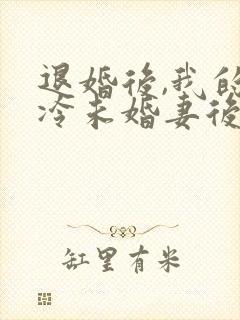 退婚後,我的
冷未婚妻後
缸里有米